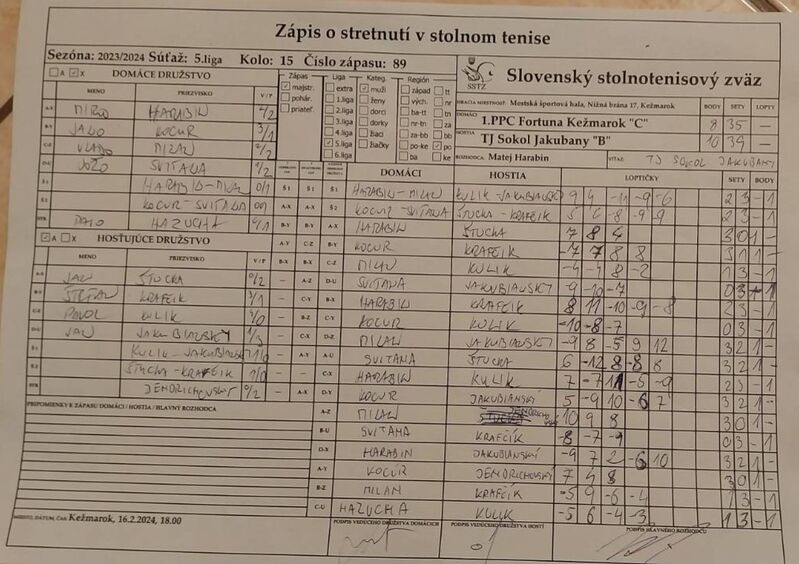 Zápis o stretnutí v stolnom tenise
Sezóna: 2023/2024 Súťaž: 5.liga Kolo: 15 Číslo zápasu: 89
A X DOMÁCE DRUŽSTVO
MENO PRIEZVISKO V / P
MIRO HARABIN 2/2
JANO KOCUR 3/1
VLADO MILAN 2/2
JOŽO SVITANA
HARABIN-MILAN 0/1
KOCUR-SVITANA 0/1
HAZUCHA 0/1
A X HOSŤUJÚCE DRUŽSTVO
MENO PRIEZVISKO V / P
JAN ŠTUCKA 0/2
ŠTEFAN KRAFČIK 3/1
PAVOL KULIK 4/0
JAN JAKUBIANSKY 1/3
KULIK-JAKUBIANSKY 1/0
ŠTUCKA-KRAFČIK 1/0
JENDRICHOVSKÝ 0/2
PRIPOMIENKY K ZÁPASU DOMÁCI / HOSTIA / HLAVNÝ ROZHODCA
MIESTO, DÁTUM, ČAS: Kežmarok, 16.2.2024, 18.00
Zápas
majstr.
pohár.
priateľ.
Liga
extra
1.liga
2.liga
3.liga
4.liga
5.liga
6.liga
Kateg.
muži
ženy
dorci
dorky
žiaci
žiačky
Región
západ tt
vých. nr
ba-tt tn
nr-tn za
za-bb bb
po-ke po
ba ke
SSTZ
Slovenský stolnotenisový zväz
HRACIA MIESTNOSŤ: Mestská športová hala, Nižná brána 17, Kežmarok BODY SETY LOPTY
DOMÁCI 1.PPC Fortuna Kežmarok "C" 8 35 –
HOSTIA TJ Sokol Jakubany "B" 10 39 –
ROZHODCA Matej Harabin VÍŤAZ: TJ SOKOL JAKUBANY
DOMÁCI HOSTIA LOPTIČKY SETY BODY
Š1 Š1 HARABIN-MILAN KULIK-JAKUBIANSKY 9 4 -11 -9 -6 2 3 -1
A-X Š2 KOCUR-SVITANA ŠTUCKA-KRAFČIK 5 6 -8 -9 -9 2 3 -1
B-Y A-X HARABIN ŠTUCKA 7 8 4 3 0 1 –
C-Z B-Y KOCUR KRAFČIK -7 7 8 8 3 1 1 –
B-X C-Z MILAN KULIK -4 -4 8 -2 1 3 -1
A-Z D-U SVITANA JAKUBIANSKÝ -9 -10 -7 0 3
C-Y B-X HARABIN KRAFČIK 8 11 -10 -9 -8 2 3 -1
B-Z C-Y KOCUR KULIK -10 -8 -7 0 3 -1
C-X D-Z MILAN JAKUBIANSKÝ -9 8 -5 9 12 3 2 1 –
A-Y A-U SVITANA ŠTUCKA 6 -12 8 -8 8 3 2 1 –
C-X HARABIN KULIK 7 -7 11 -5 -9 2 3 -1
A-X D-Y KOCUR JAKUBIANSKÝ 5 -9 10 -6 7 3 2 1 –
A-Z MILAN JENDRICHOVSKÝ 10 9 8 3 0 1 –
B-U SVITANA KRAFČÍK -8 -7 -9 0 3 -1
D-X HARABIN JAKUBIANSKÝ -9 7 2 -6 10 3 2 1 –
A-Y KOCUR JENDRICHOVSKÝ 7 4 8 3 0 1 –
B-Z MILAN KRAFČIK -5 9 -6 -4 1 3 -1
C-U HAZUCHA KULIK -5 6 -4 -3 1 3 -1
PODPIS VEDÚCEHO DRUŽSTVA DOMÁCICH PODPIS VEDÚCEHO DRUŽSTVA HOSTÍ PODPIS HLAVNÉHO ROZHODCU